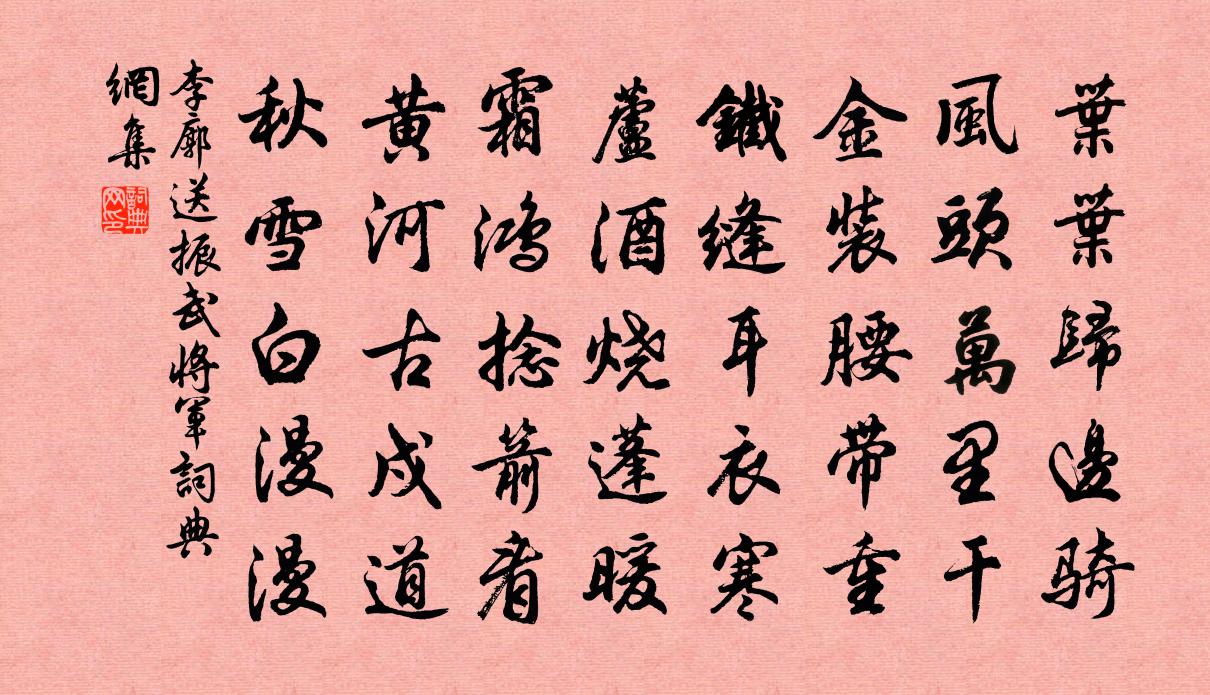 葉葉歸邊騎
風頭萬里干
金裝腰帶重
鐵縫耳衣寒
蘆酒燒蓬暖
霜鴻捻箭看
黃河古戍道
秋雪白漫漫
李廓送振武將軍詞典
網集
詞典網印